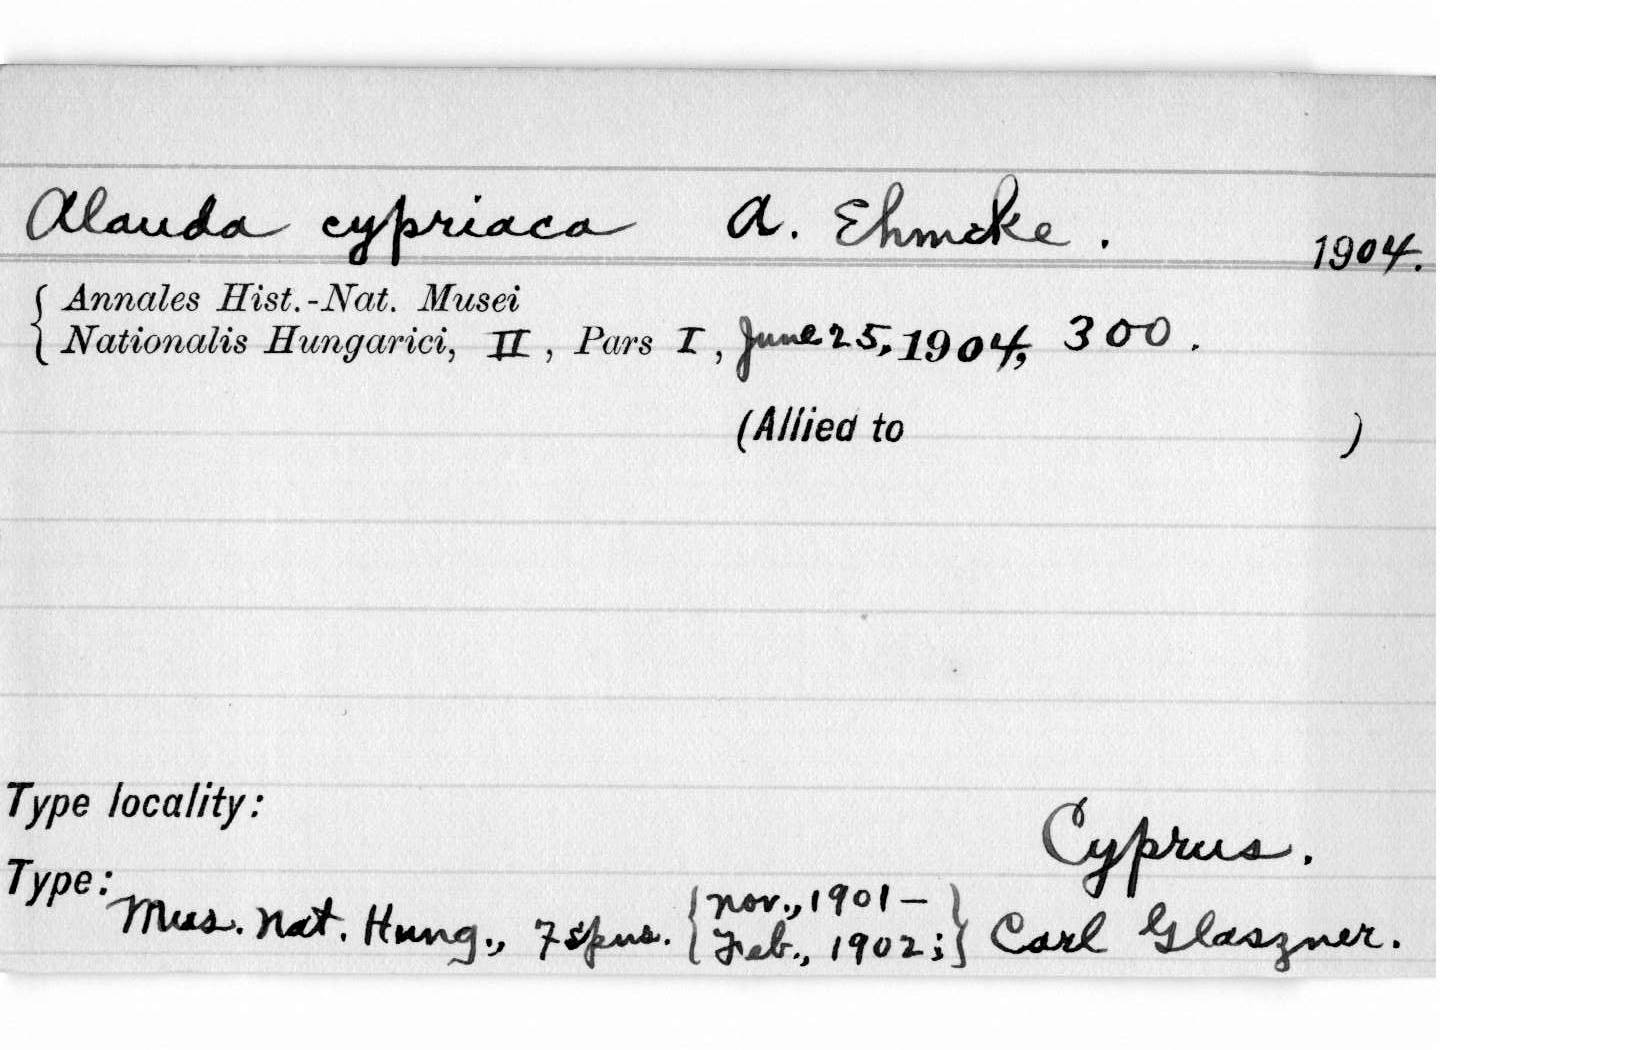 Alauda cypriaca A. Ehmcke. 1904.
Annales Hist.-Nat. Musei
Nationalis Hungarici, II, Pars I, June 25, 1904, 300.
(Allied to )
Type locality:
Cyprus.
Type:
Mus. Nat. Hung., 7 spns. {Nov., 1901 –
Feb., 1902;} Carl Glaszner.